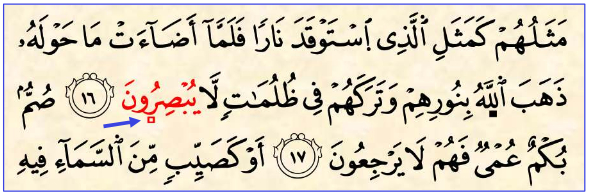 مَثَلُهُمْ كَمَثَلِ ٱلَّذِى ٱسْتَوْقَدَ نَارًا فَلَمَّآ أَضَآءَتْ مَا حَوْلَهُۥ
ذَهَبَ ٱللَّهُ بِنُورِهِمْ وَتَرَكَهُمْ فِى ظُلُمَٰتٍ لَّا يُبْصِرُونَ ١٦ صُمٌّۢ
بُكْمٌ عُمْىٌ فَهُمْ لَا يَرْجِعُونَ ١٧ أَوْ كَصَيِّبٍ مِّنَ ٱلسَّمَآءِ فِيهِ